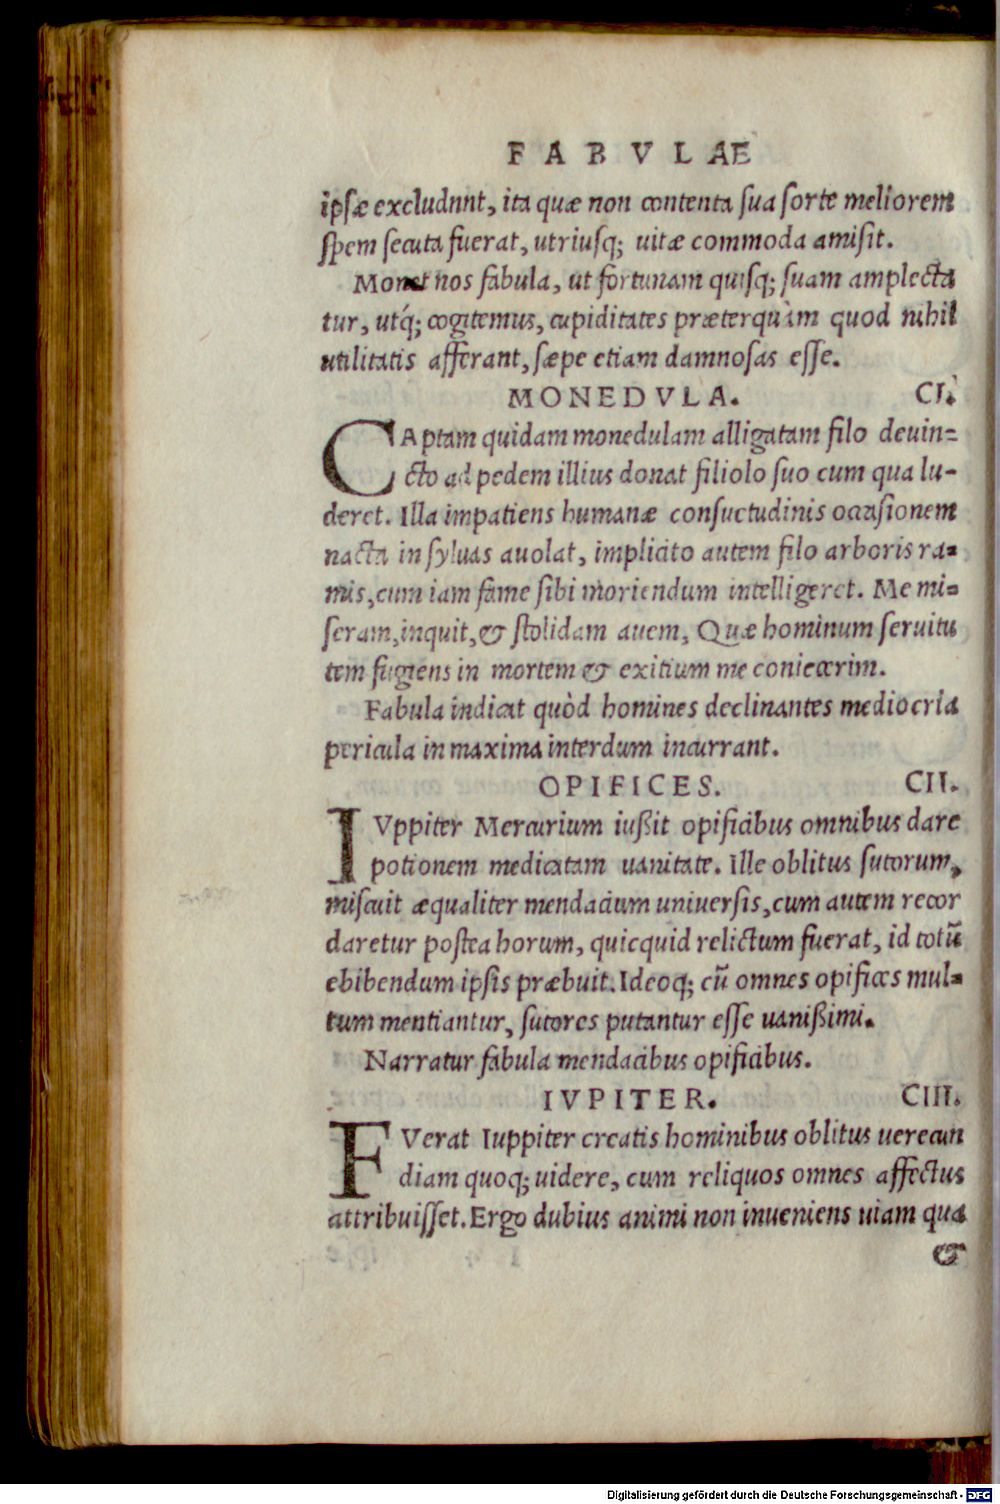 FABVLAE
ipsæ excludnnt, ita quæ non contenta sua sorte meliorem
spem secuta fuerat, utriusq; uitæ commoda amisit.
Monet nos fabula, ut fortunam quisq; suam amplecta
tur, utq́; cogitemus, cupiditates præterquàm quod nihil
utilitatis afferant, sæpe etiam damnosas esse.
MONEDVLA. CI.
CAptam quidam monedulam alligatam filo deuin=
cto ad pedem illius donat filiolo suo cum qua lu-
deret. Illa impatiens humanæ consuetudinis occasionem
nacta in syluas auolat, implicito autem filo arboris ra=
mis, cum iam fame sibi moriendum intelligeret. Me mi=
seram, inquit, & stolidam auem, Quæ hominum seruitu
tem fugiens in mortem & exitium me coniecerim.
Fabula indicat quòd homines declinantes mediocria
pericula in maxima interdum incurrant.
OPIFICES. CII.
IVppiter Mercurium iußit opificibus omnibus dare
potionem medicatam uanitate. Ille oblitus sutorum,
miscuit æqualiter mendacium uniuersis, cum autem recor
daretur postea horum, quicquid relictum fuerat, id totũ
ebibendum ipsis præbuit. Ideoq; cũ omnes opifices mul=
tum mentiantur, sutores putantur esse uanißimi.
Narratur fabula mendacibus opificibus.
IVPITER. CIII.
FVerat Iuppiter creatis hominibus oblitus uerecun
diam quoq; uidere, cum reliquos omnes affectus
attribuisset. Ergo dubius animi non inueniens uiam qua
&
Digitalisierung gefördert durch die Deutsche Forschungsgemeinschaft - DFG